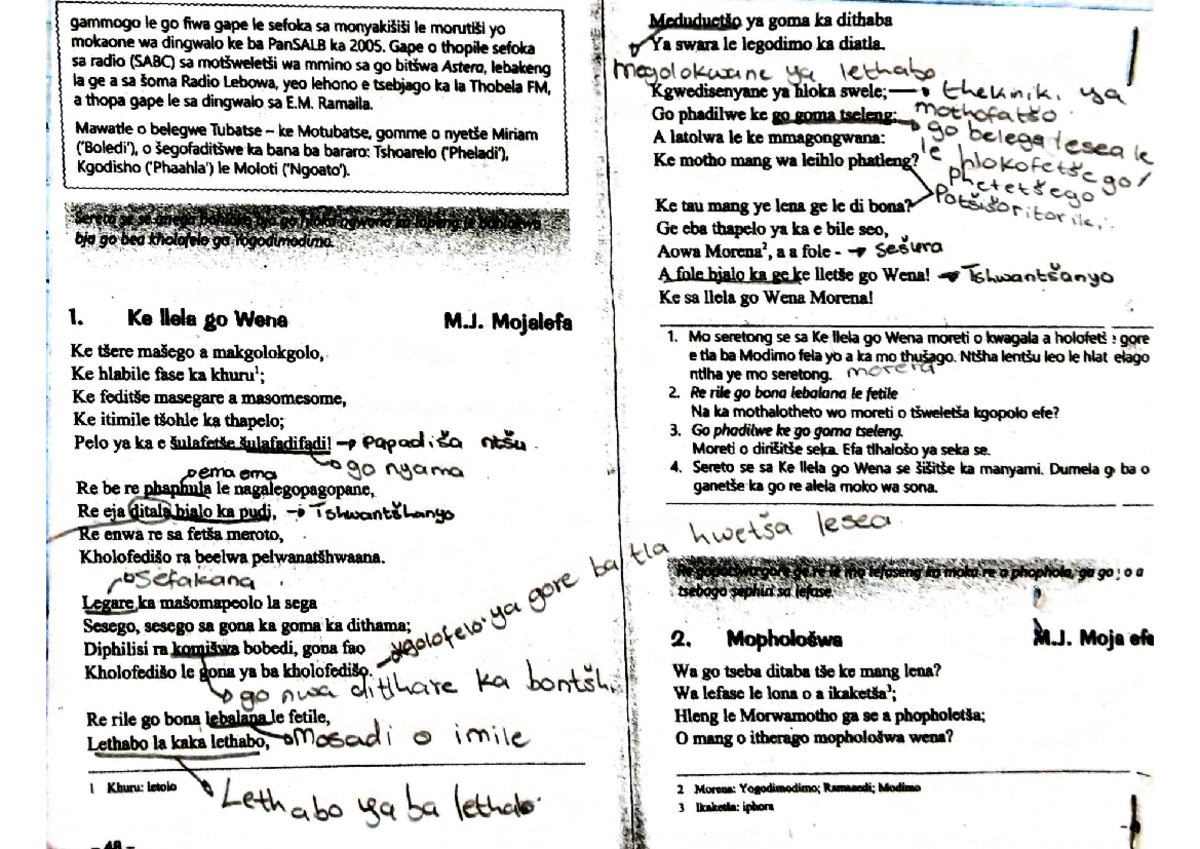 gammogo le go fiwa gape le sefoka sa monyakišiši le morutiši yo
mokaone wa dingwalo ke ba PanSALB ka 2005. Gape o thopile sefoka
sa radio (SABC) sa motšweletši wa mmino sa go bitšwa Astera, lebakeng
la ge a sa šoma Radio Lebowa, yeo lehono e tsebjago ka la Thobela FM,
a thopa gape le sa dingwalo sa E.M. Ramaila.
Mawatle o belegwe Tubatse – ke Motubatse, gomme o nyetše Miriam
('Boledi'), o šegofaditšwe ka bana ba bararo: Tshoarelo ('Pheladi'),
Kgodisho ('Phaahla') le Moloti ('Ngoato').
bja go bea kholofelo go Yogodimodimo.
1. Ke llela go Wena M.J. Mojalefa
Ke tšere mašego a makgolokgolo,
Ke hlabile fase ka khuru¹;
Ke feditše masegare a masomesome,
Ke itimile tšohle ka thapelo;
Pelo ya ka e šulafetše šulafadifadi! → Papadiša ntšu.
go nyama
ema ema
Re be re phaphula le nagalegopagopane,
Re eja ditala bjalo ka pudi, → Tshwantšhanyo
Re enwa re sa fetša meroto,
Kholofedišo ra beelwa pelwanatšhwaana.
Sefakana
Legare ka mašomapeolo la sega
Sesego, sesego sa gona ka goma ka dithama;
Diphilisi ra komišwa bobedi, gona fao
Kholofedišo le gona ya ba kholofedišo. kgolofelo ya gore ba tla hwetša lesea
go nwa ditlhare ka bontšhi
Re rile go bona lebalana le fetile,
Lethabo la kaka lethabo, Mosadi o imile
1 Khuru: letolo
Lethabo ya ba lethabo
- 48 -
Meduduetšo ya goma ka dithaba
Ya swara le legodimo ka diatla.
Megolokwane ya lethabo
Kgwedisenyane ya hloka swele; → thekniki ya
mothofatšo
Go phadilwe ke go goma tseleng:
go belega lesea le
A latolwa le ke mmagongwana:
le hlokofetšego/
Ke motho mang wa leihlo phatleng?
phetetšego
Potšišoritoriki.
Ke tau mang ye lena ge le di bona?
Ge eba thapelo ya ka e bile seo,
Aowa Morena², a a fole - → Sešura
A fole bjalo ka ge ke lletše go Wena! → Tshwantšanyo
Ke sa llela go Wena Morena!
1. Mo seretong se sa Ke llela go Wena moreti o kwagala a holofetš gore
e tla ba Modimo fela yo a ka mo thušago. Ntšha lentšu leo le hlat elago
ntlha ye mo seretong. morena
2. Re rile go bona lebalana le fetile
Na ka mothalotheto wo moreti o tšweletša kgopolo efe?
3. Go phadilwe ke go goma tseleng.
Moreti o dirišitše seka. Efa tlhalošo ya seka se.
4. Sereto se sa Ke llela go Wena se šišitše ka manyami. Dumela g ba o
ganetše ka go re alela moko wa sona.
tsebago sephiri sa lefase.
2. Mophološwa M.J. Moja efa
Wa go tseba ditaba tše ke mang lena?
Wa lefase le lona o a ikaketša³;
Hleng le Morwamotho ga se a phopholetša;
O mang o itherago mophološwa wena?
2 Morena: Yogodimodimo; Ramasedi; Modimo
3 Ikaketša: iphora